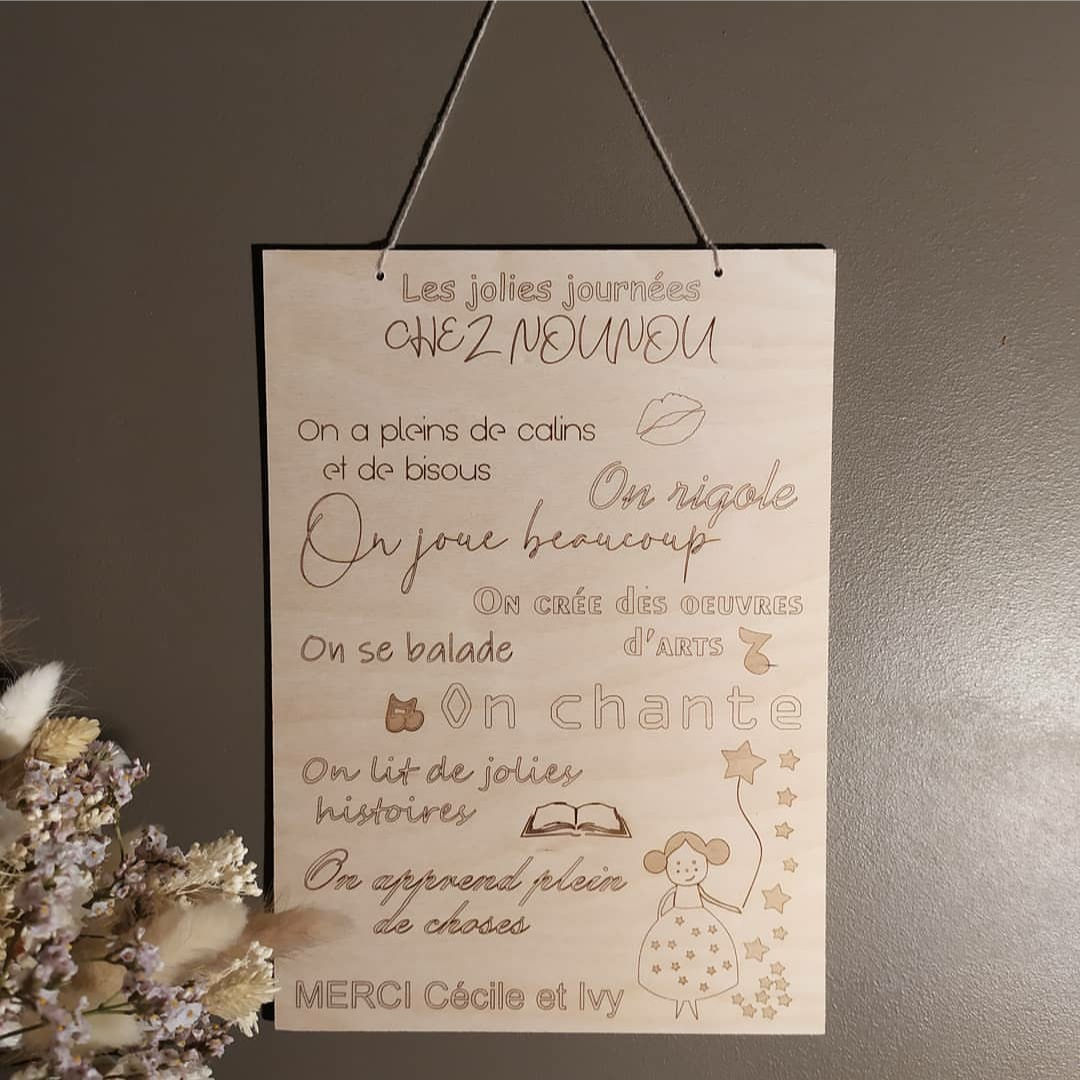 Les jolies journées
CHEZ NOUNOU
On a pleins de calins
et de bisous
On rigole
On joue beaucoup
On crée des oeuvres
d'arts
On se balade
On chante
On lit de jolies
histoires
On apprend plein
de choses
MERCI Cécile et Ivy